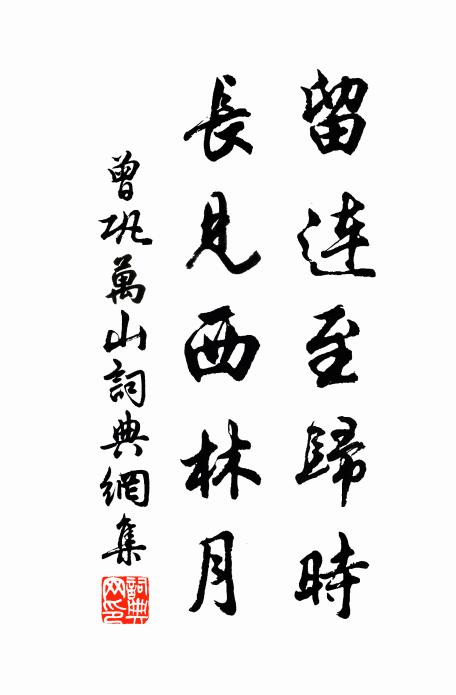 留连至歸時
長見西林月
曾巩萬山詞典網集
詞典網印